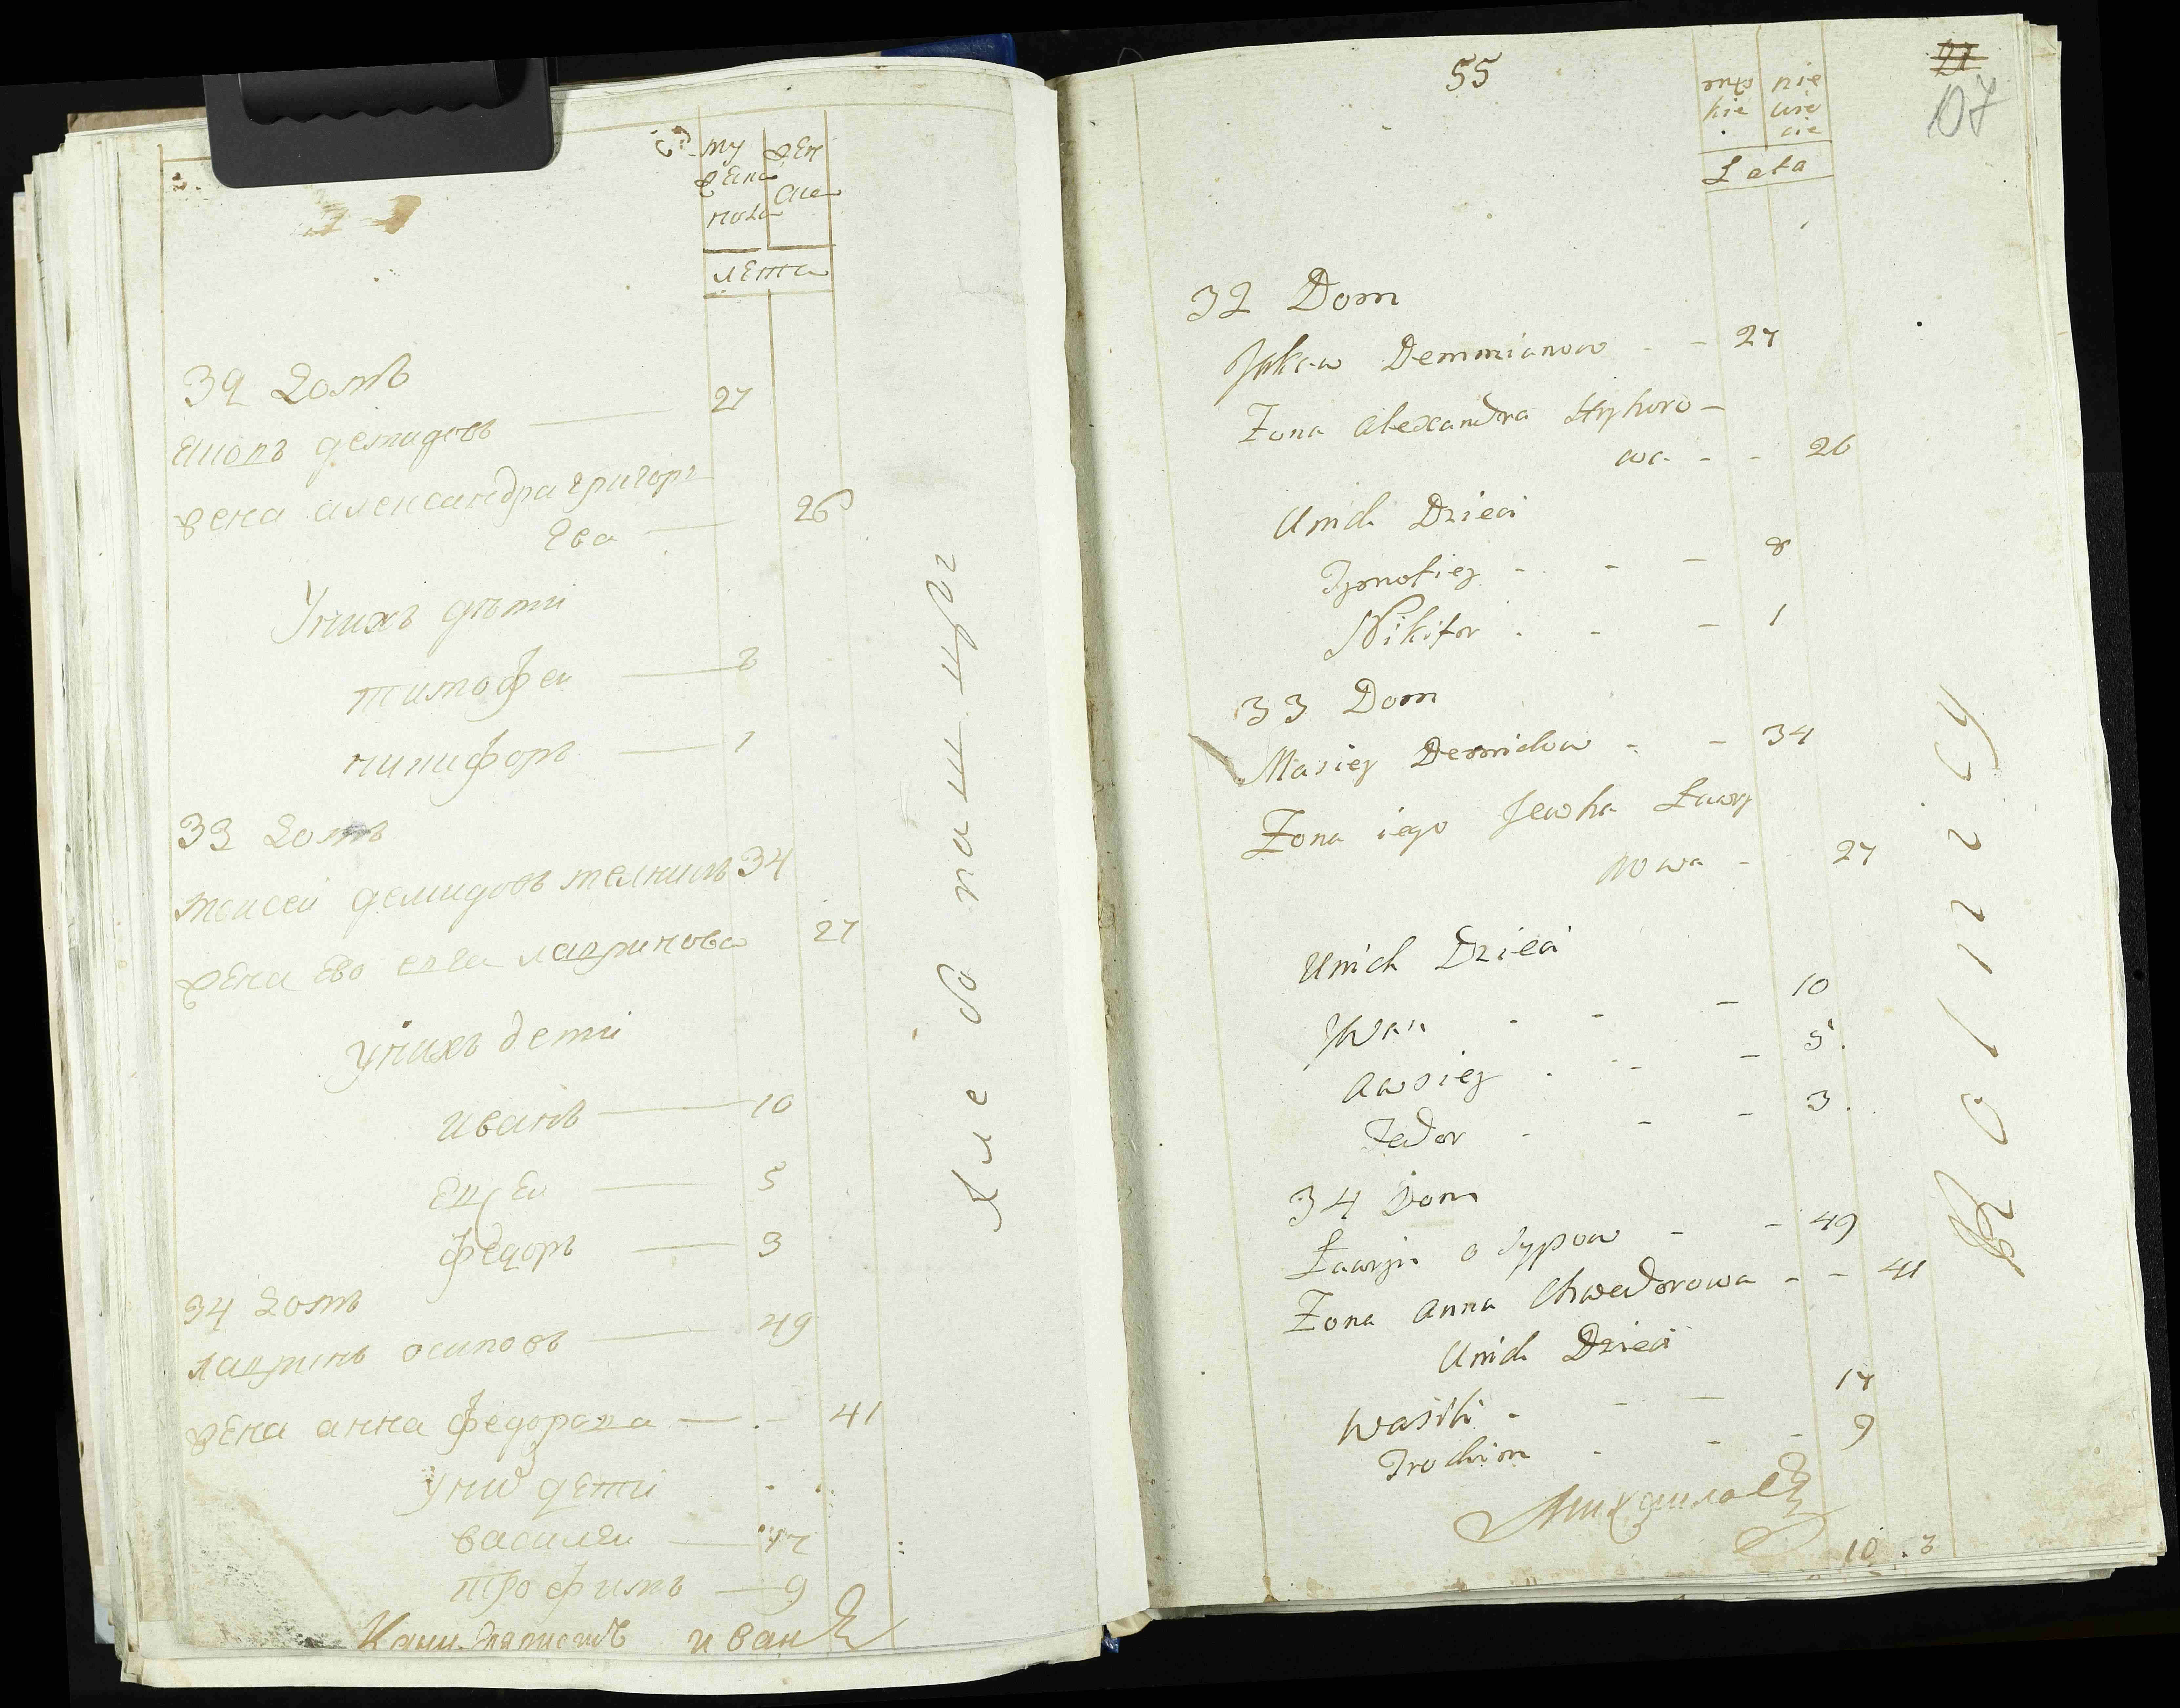 му
жен
жена
ска
пола
лета
32 домъ
яковъ демидовъ 27
жена александра григорь
ева 26
У нихъ дѣти
тимофеи 8
никифоръ 1
33 домъ
моисеи демидовъ мелникъ 34
жена ево евга лаврикова 27
у нихъ дети
иванъ 10
евсеи 5
федоръ 3
34 домъ
лавринъ осиповъ 49
жена анна федорова 41
у них дети
василеи 17
трофимъ 9
иван
55
męs nie
kie wie
cie
Lata
21
107
32 Dom
Jakow Demmianow - - 27
Żona Alexandra Hryhoro-
wa - - 26
U nich Dzieci
Tymofiey - - - 8
Nikifor - - - 1
33 Dom
Masiey Demidow - - 34
Żona iego Jewha Ławry
nowa - 27
U nich Dzieci
Jwan - - - 10
Awsiey - - - 5.
Fedor - - - 3.
34 Dom
Ławryn Osypow - - 49
Żona Anna Chwedorowa - - 41
U nich Dzieci
Wasili - - - 17
Trochim - - - 9
10 . 3